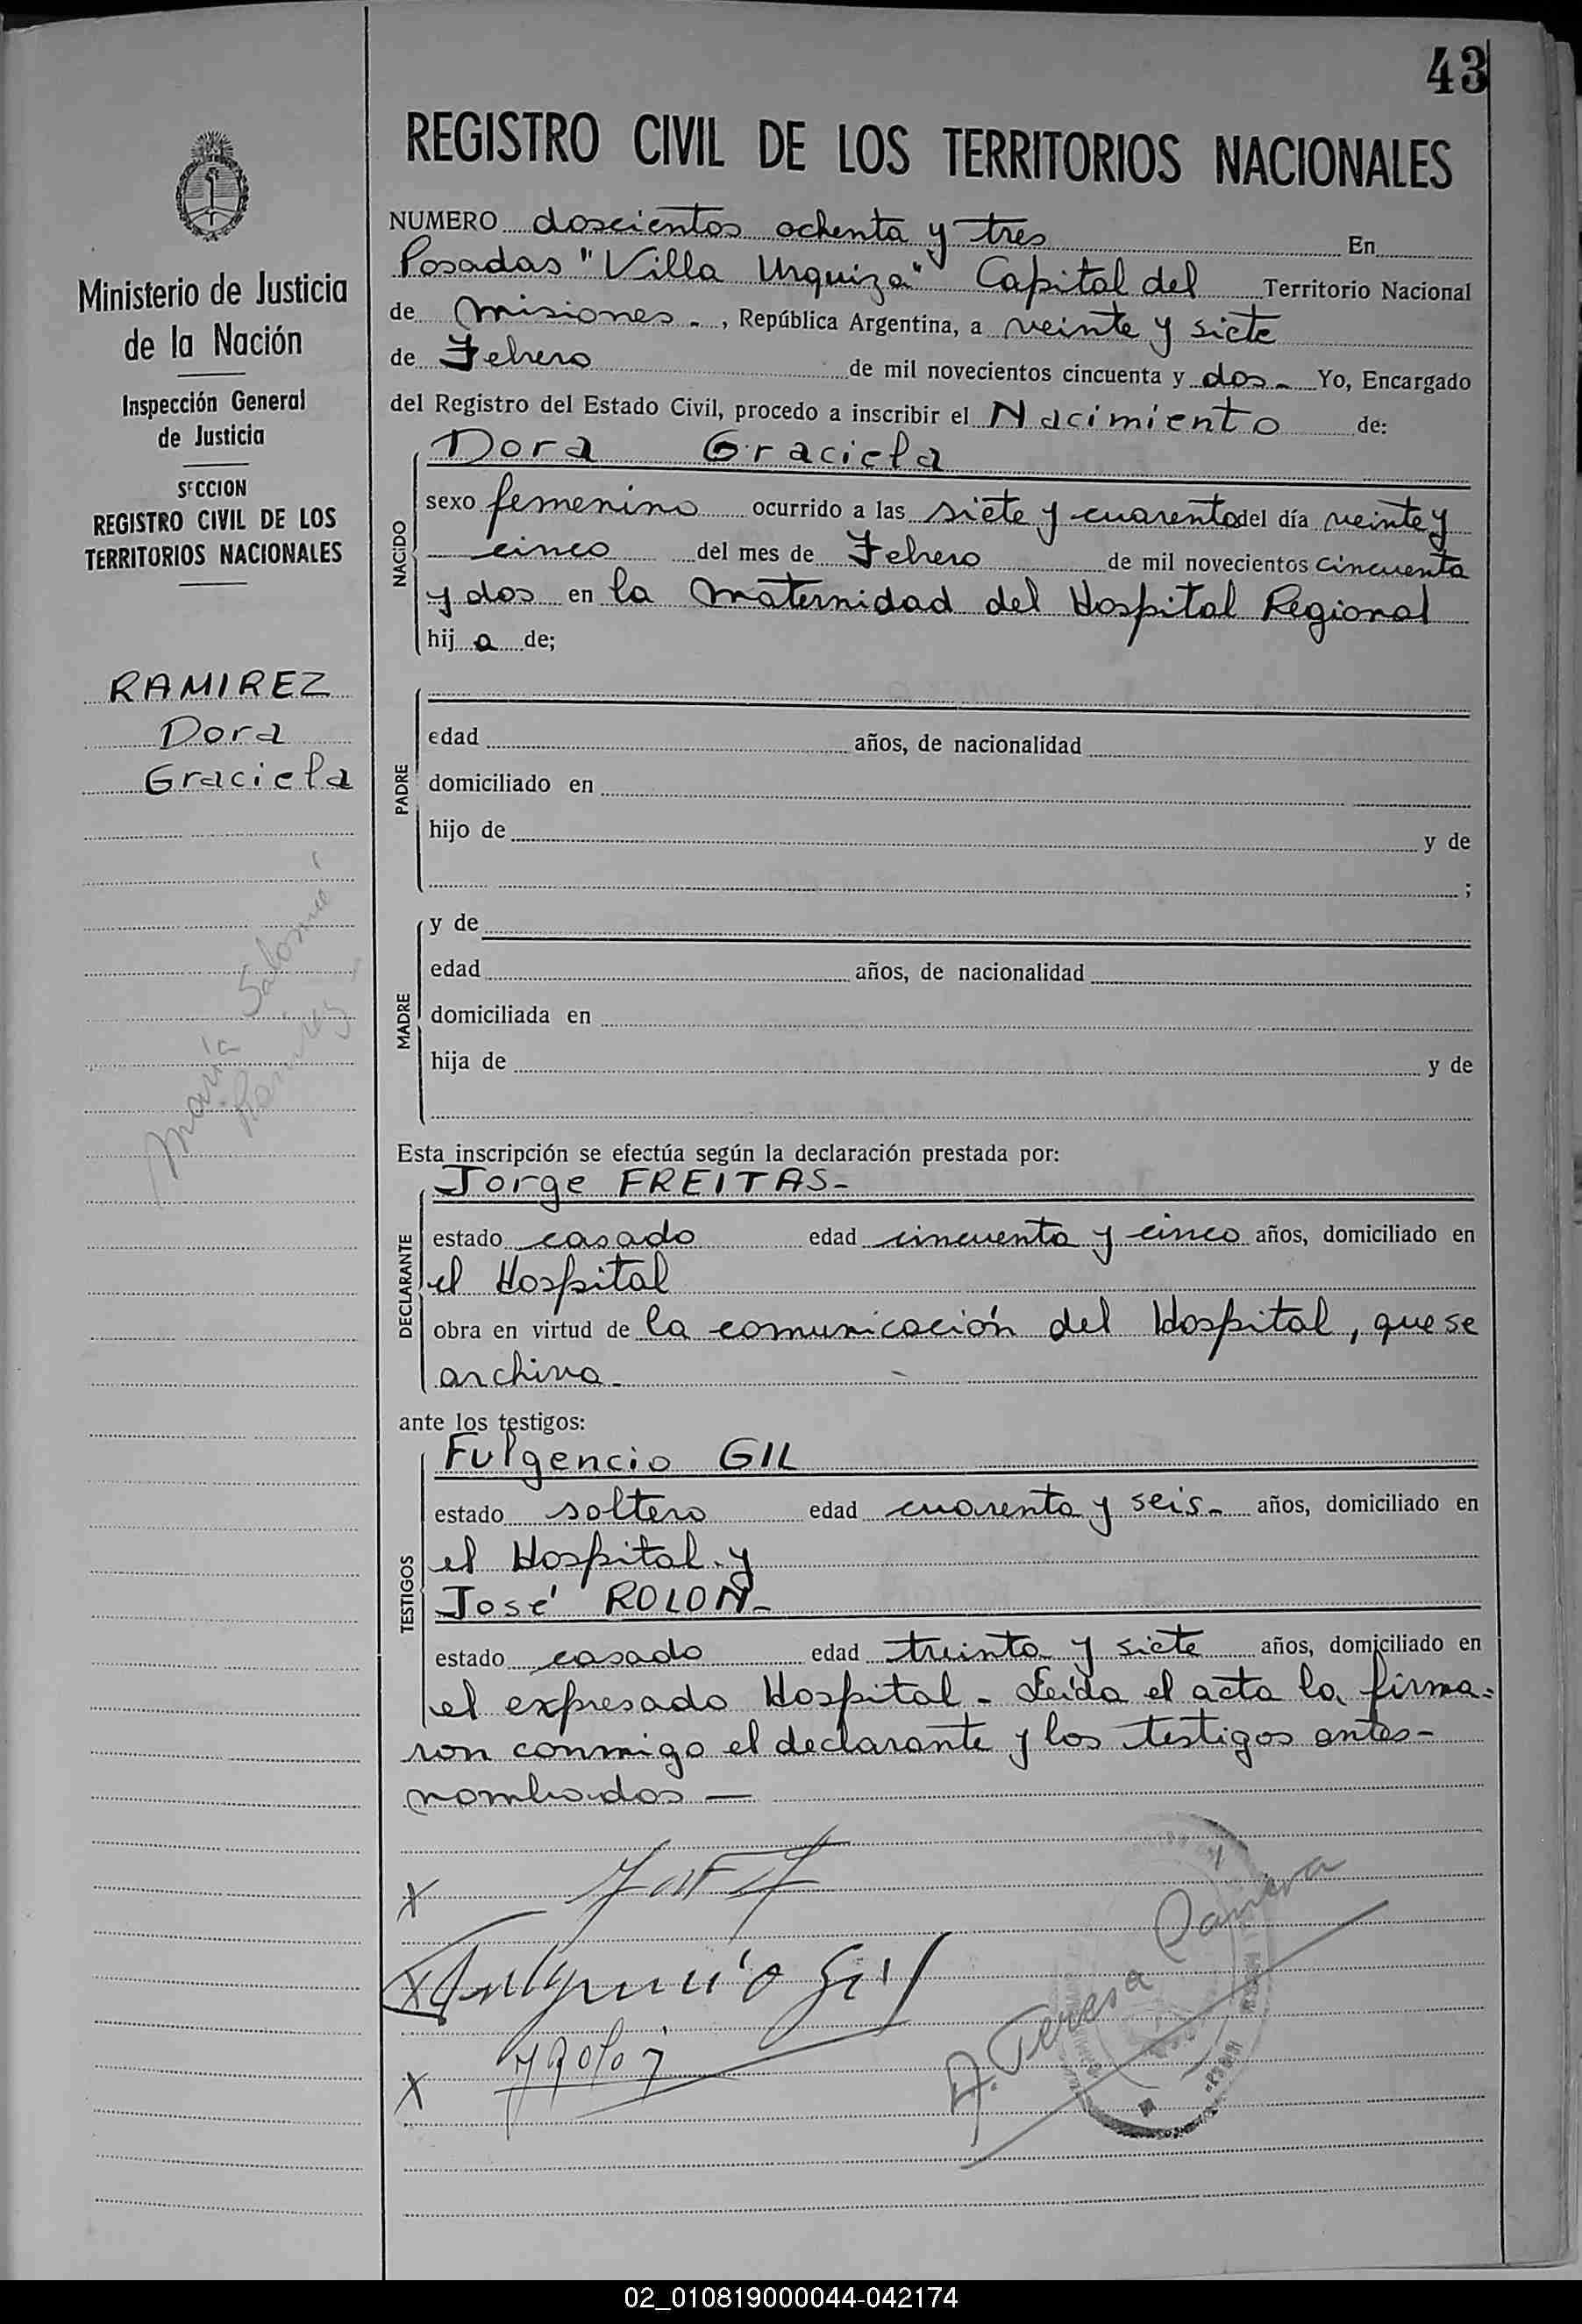 43
REGISTRO CIVIL DE LOS TERRITORIOS NACIONALES
Ministerio de Justicia
de la Nación
Inspección General
de Justicia
SECCION
REGISTRO CIVIL DE LOS
TERRITORIOS NACIONALES
RAMIREZ
Dora
Graciela
María Salomé
Ramirez
NUMERO doscientos ochenta y tres En
Posadas "Villa Urquiza" Capital del Territorio Nacional
de Misiones -, República Argentina, a veinte y siete
de Febrero de mil novecientos cincuenta y dos - Yo, Encargado
del Registro del Estado Civil, procedo a inscribir el Nacimiento de:
NACIDO
Dora Graciela
sexo femenino ocurrido a las siete y cuarenta del día veinte y
cinco del mes de Febrero de mil novecientos cincuenta
y dos en la Maternidad del Hospital Regional
hij a de;
PADRE
edad años, de nacionalidad
domiciliado en
hijo de y de
;
MADRE
y de
edad años, de nacionalidad
domiciliada en
hija de y de
Esta inscripción se efectúa según la declaración prestada por:
DECLARANTE
Jorge FREITAS-
estado casado edad cincuenta y cinco años, domiciliado en
el Hospital
obra en virtud de la comunicación del Hospital, que se
archiva-
ante los testigos:
TESTIGOS
Fulgencio GIL
estado soltero edad cuarenta y seis- años, domiciliado en
el Hospital y
José ROLON-
estado casado edad treinta y siete años, domiciliado en
el expresado Hospital - Leída el acta la firma=
ron conmigo el declarante y los testigos antes-
nombrados —
X
X Fulgencio Gil
X
A. Teresa
02_010819000044-042174